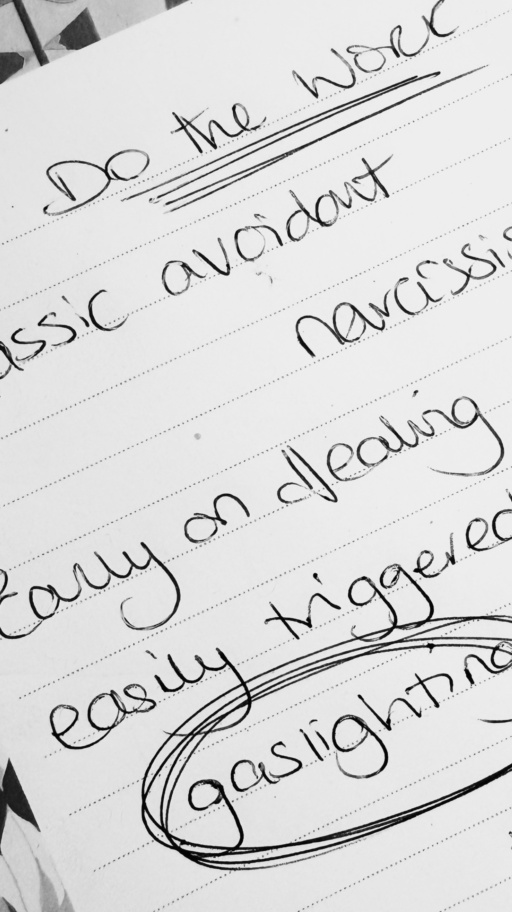 Do the Work
assic avoidant
narcissis
Early on dealing
easily triggered
gaslighting